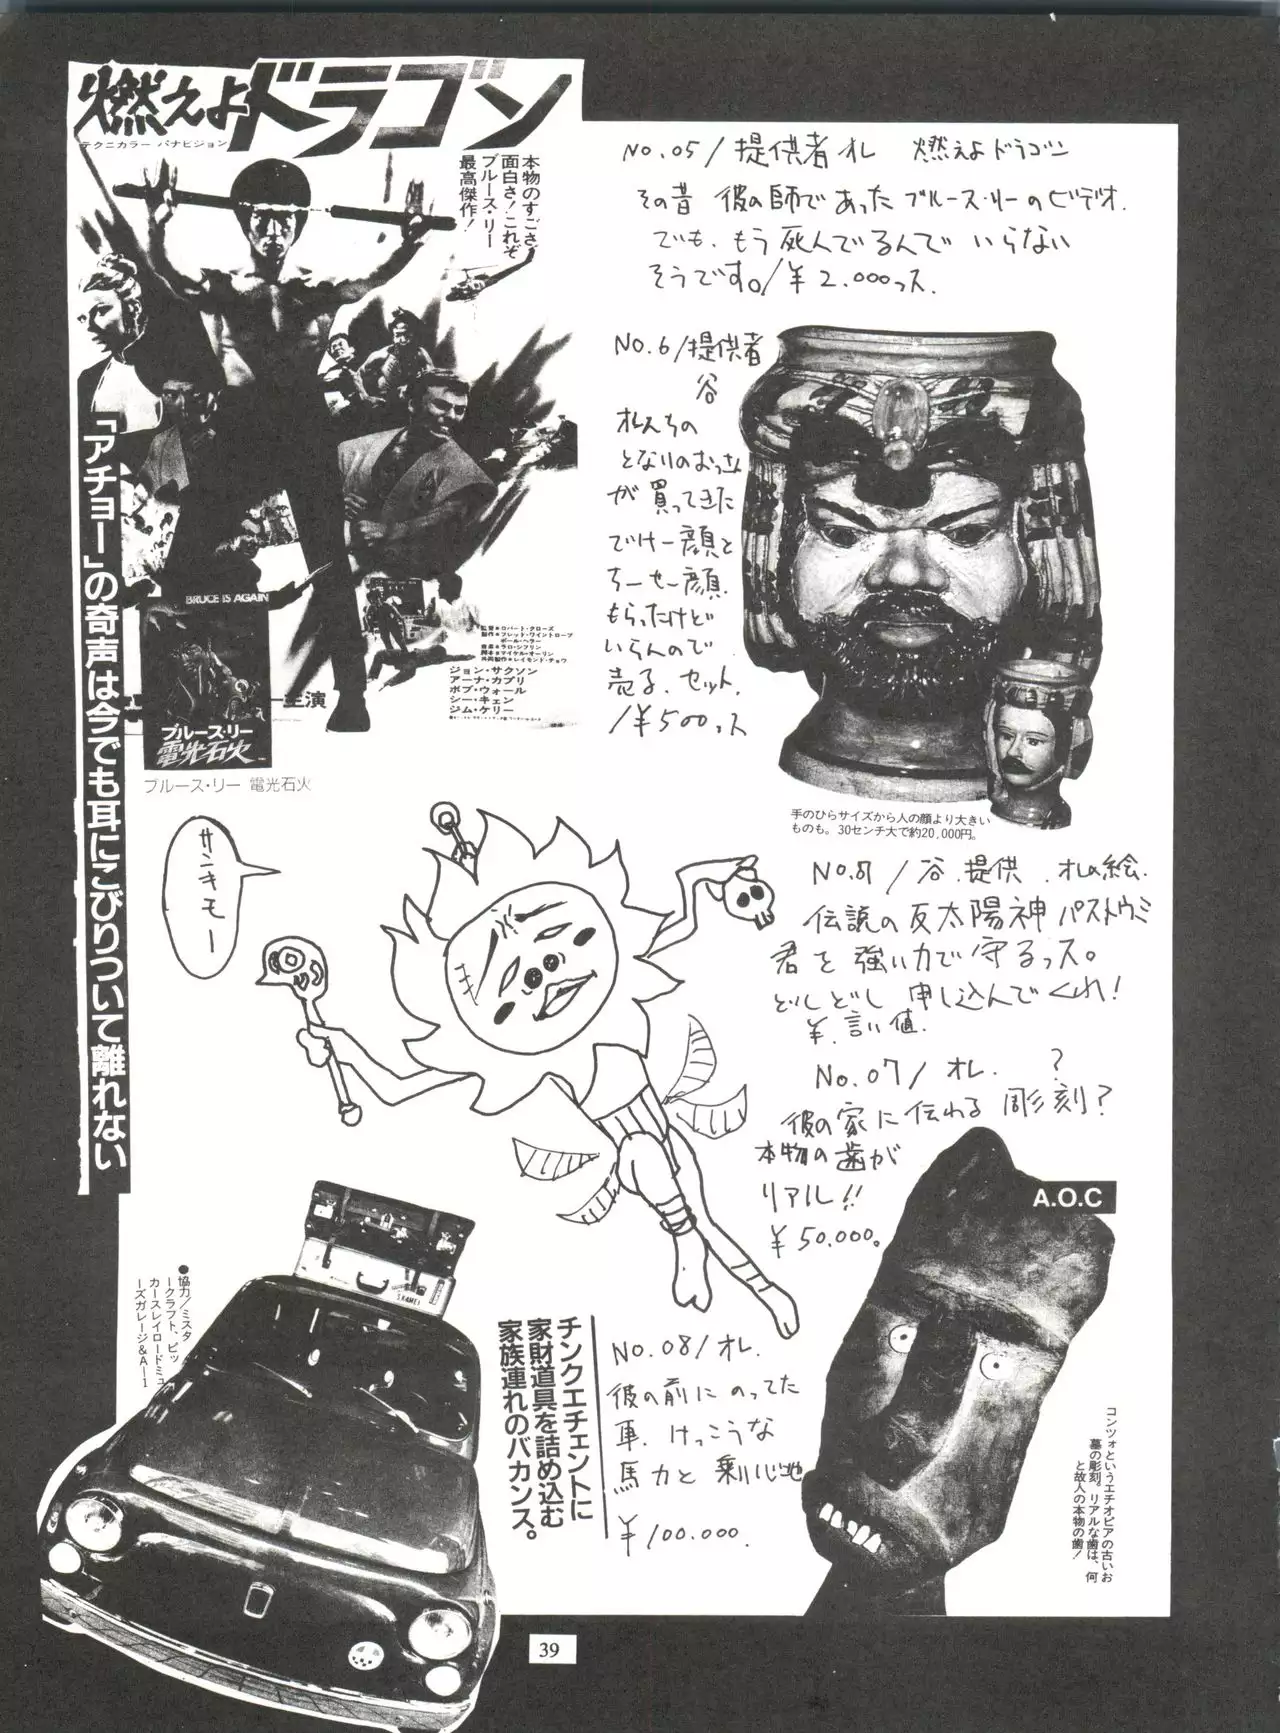 燃えよドラゴン
テクニカラー パナビジョン
本物のすごさ、
面白さ!これぞ
ブルース・リー
最高傑作!
「アチョー」の奇声は今でも耳にこびりついて離れない
BRUCE IS AGAIN
監督●ロバート・クローズ
製作●フレッド・ワイントローブ
ポール・ヘラー
音楽●ラロ・シフリン
脚本●マイケル・オーリン
共同製作●レイモンド・チョウ
ジョン・サクソン
アーナ・カプリ
ボブ・ウォール
シー・キェン
ジム・ケリー
主演
ブルース・リー
電光石火
ブルース・リー 電光石火
No.05/提供者オレ 燃えよドラゴン
その昔 彼の師であったブルース・リーのビデオ.
でも、もう死んでるんで いらない
そうです。/¥2.000っス.
No.6/提供者
谷
オレんちの
となりのおっさん
が買ってきた
でけー顔と
ちーせー顔.
もらったけど
いらんので
売る. セット.
/¥500っス
手のひらサイズから人の顔より大きい
ものも。30センチ大で約20,000円。
サンキモー
谷.提供 .オレの絵.
伝説の反太陽神 パストゥミ
君を強い力で守るっス。
どしどし申し込んでくれ!
¥.言い値.
No.07/オレ. ?
彼の家に伝わる彫刻?
本物の歯が
リアル!!
¥50.000。
A.O.C
コンツォというエチオピアの古いお
墓の彫刻。リアルな歯は、何
と故人の本物の歯!
No.08/オレ.
彼の前にのってた
車. けっこうな
馬力と乗り心地
¥100.000.
チンクエチェントに
家財道具を詰め込む
家族連れのバカンス。
●協力/ミスタ
ークラフト、ビッ
カースレイロードミュ
ーズガレージ&A—1
39